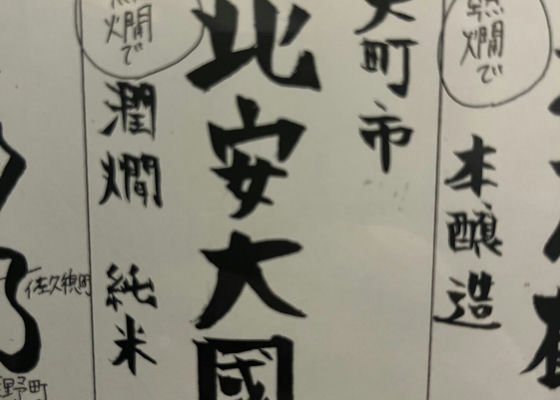 熱燗で
本醸造
大町市
北安大國
燗で
潤燗 純米
佐久穂町
野町